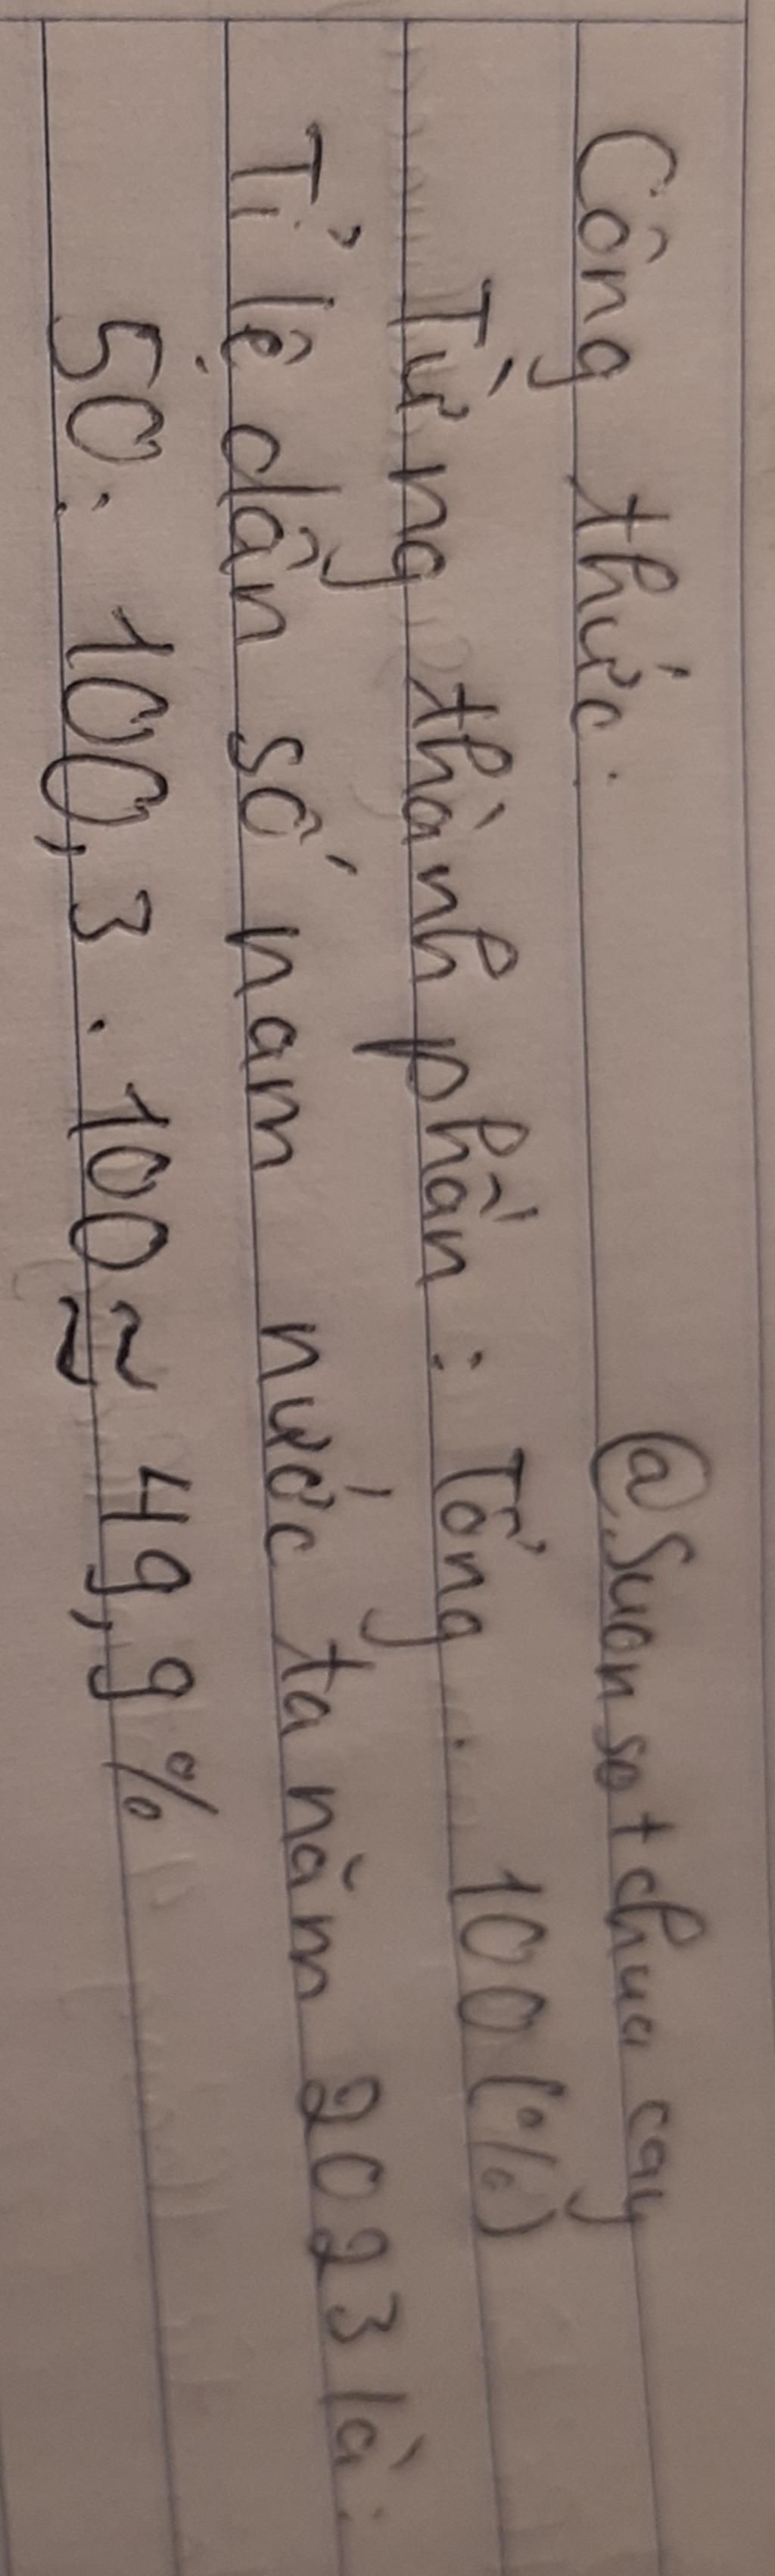 Công thức: @Suonsotchuacay
Từng thành phần : Tổng . 100 (%)
Tỉ lệ dân số nam nước ta năm 2023 là:
50 : 100,3 . 100 ≈ 49,9 %